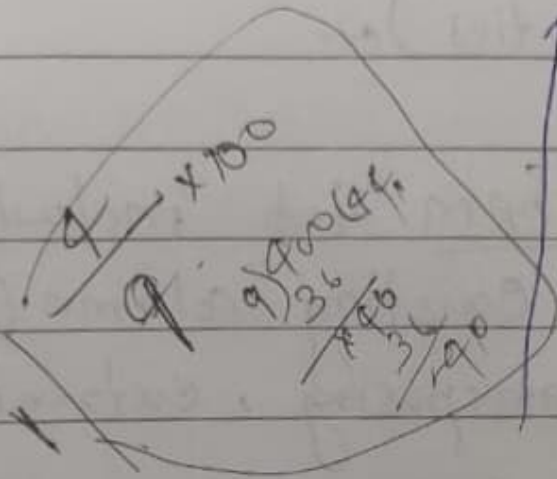 4/9 × 100
9)400(44.
36
40
36
40